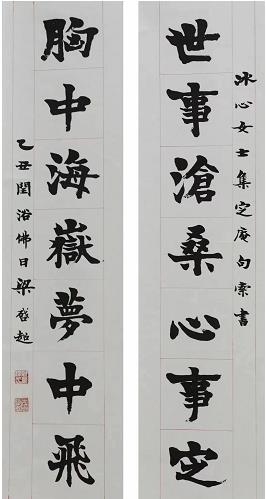 冰心女士集定庵句索書
世事滄桑心事定
胸中海嶽夢中飛
乙丑閏浴佛日梁啓超